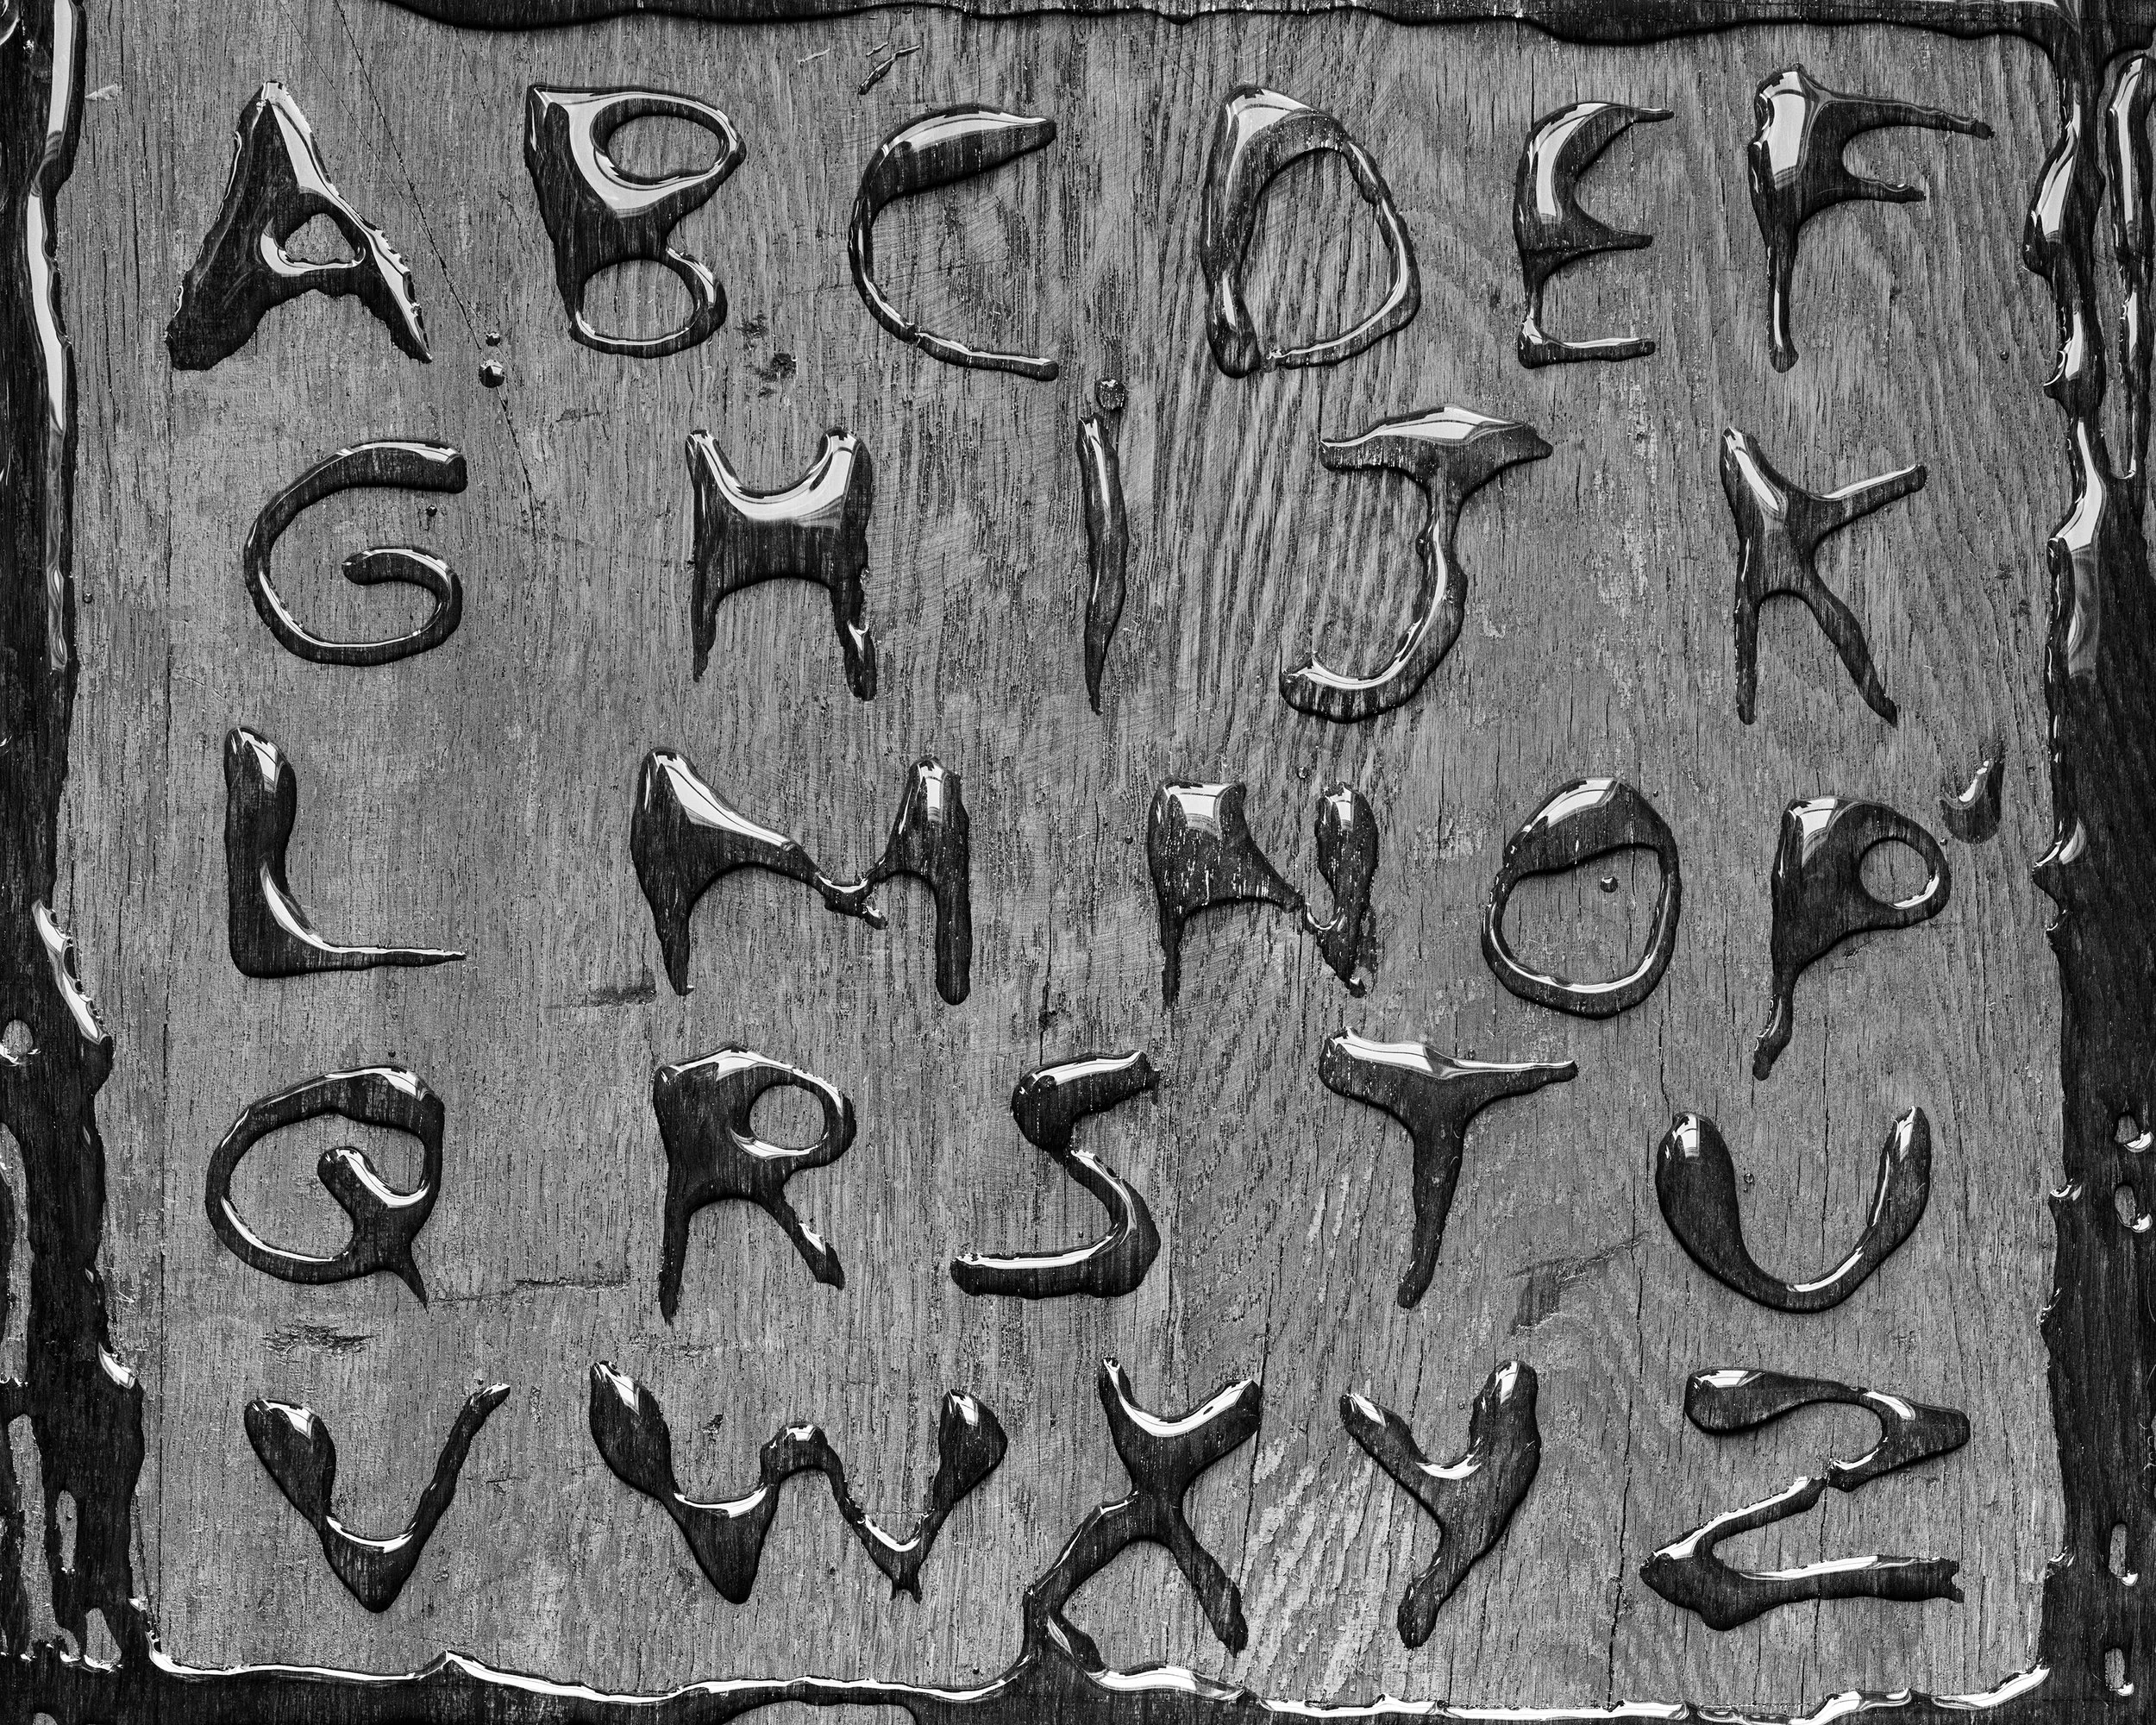 A B C D E F
G H I J K
L M N O P
Q R S T U
V W X Y Z